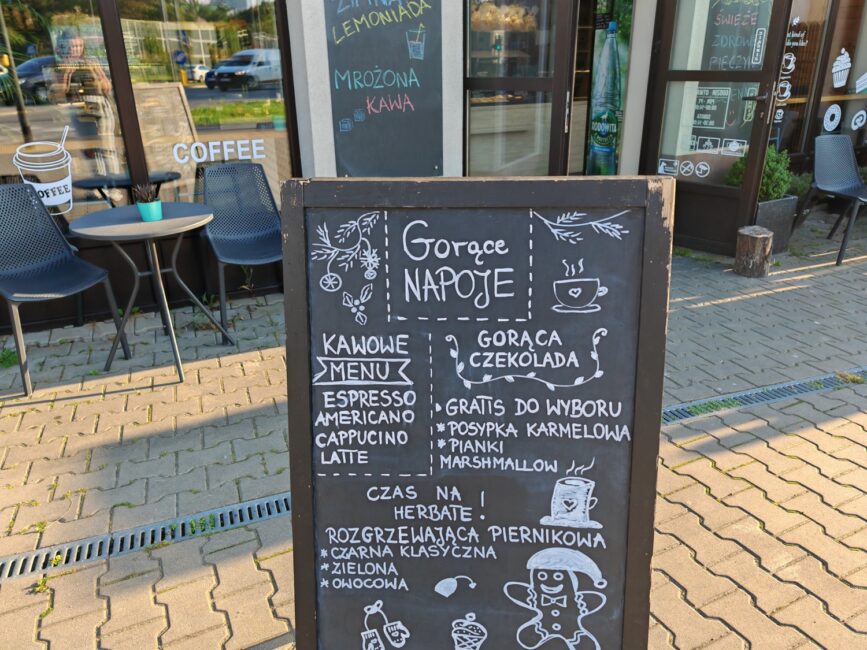 LEMONIADA
MROŻONA
KAWA
COFFEE
COFFEE
ŚWIEŻE
ZDROWE
Gorące
NAPOJE
KAWOWE
MENU
ESPRESSO
AMERICANO
CAPPUCINO
LATTE
GORĄCA
CZEKOLADA
GRATIS DO WYBORU
* POSYPKA KARMELOWA
* PIANKI
MARSHMALLOW
CZAS NA
HERBATE!
ROZGRZEWAJĄCA PIERNIKOWA
* CZARNA KLASYCZNA
* ZIELONA
* OWOCOWA